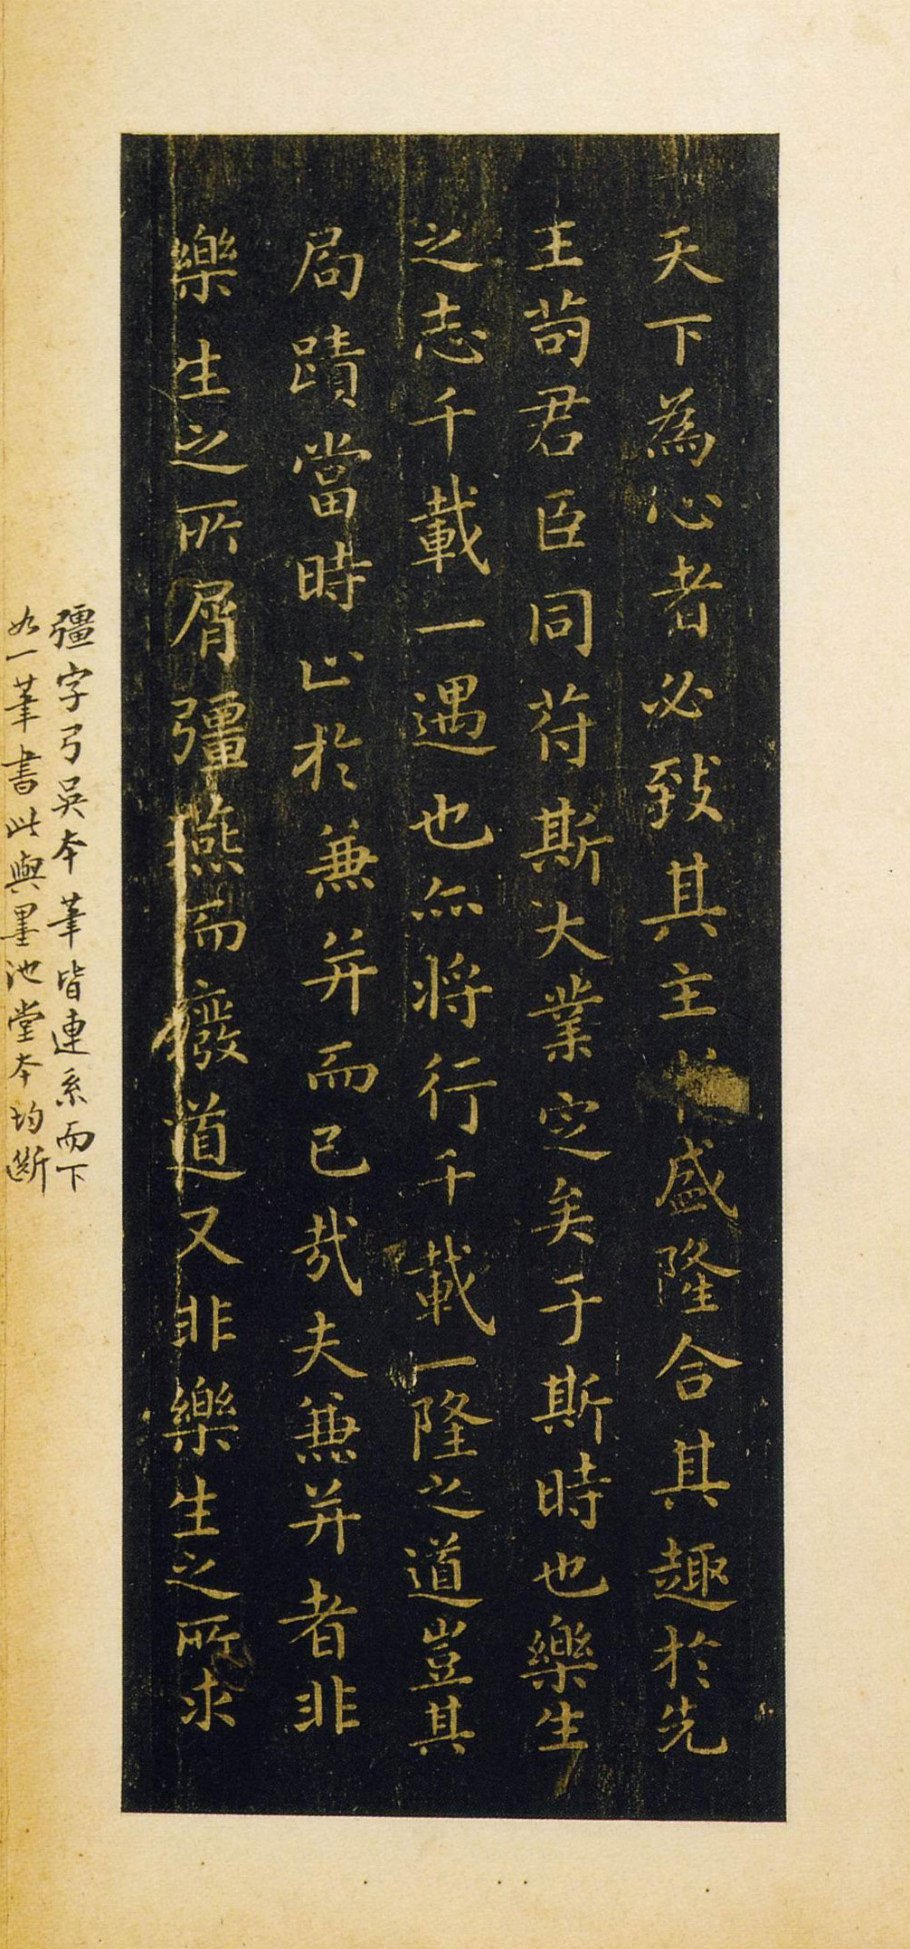 天下為心者必致其主於盛隆合其趣於先
王苟君臣同苻斯大業㝎矣于斯時也樂生
之志千載一遇也亦將行千載一隆之道豈其
局蹟當時止於兼并而已哉夫兼并者非
樂生之所屑彊燕而廢道又非樂生之所求
彊字弓吳本筆皆連系而下
如一筆書此與墨池堂本均斷